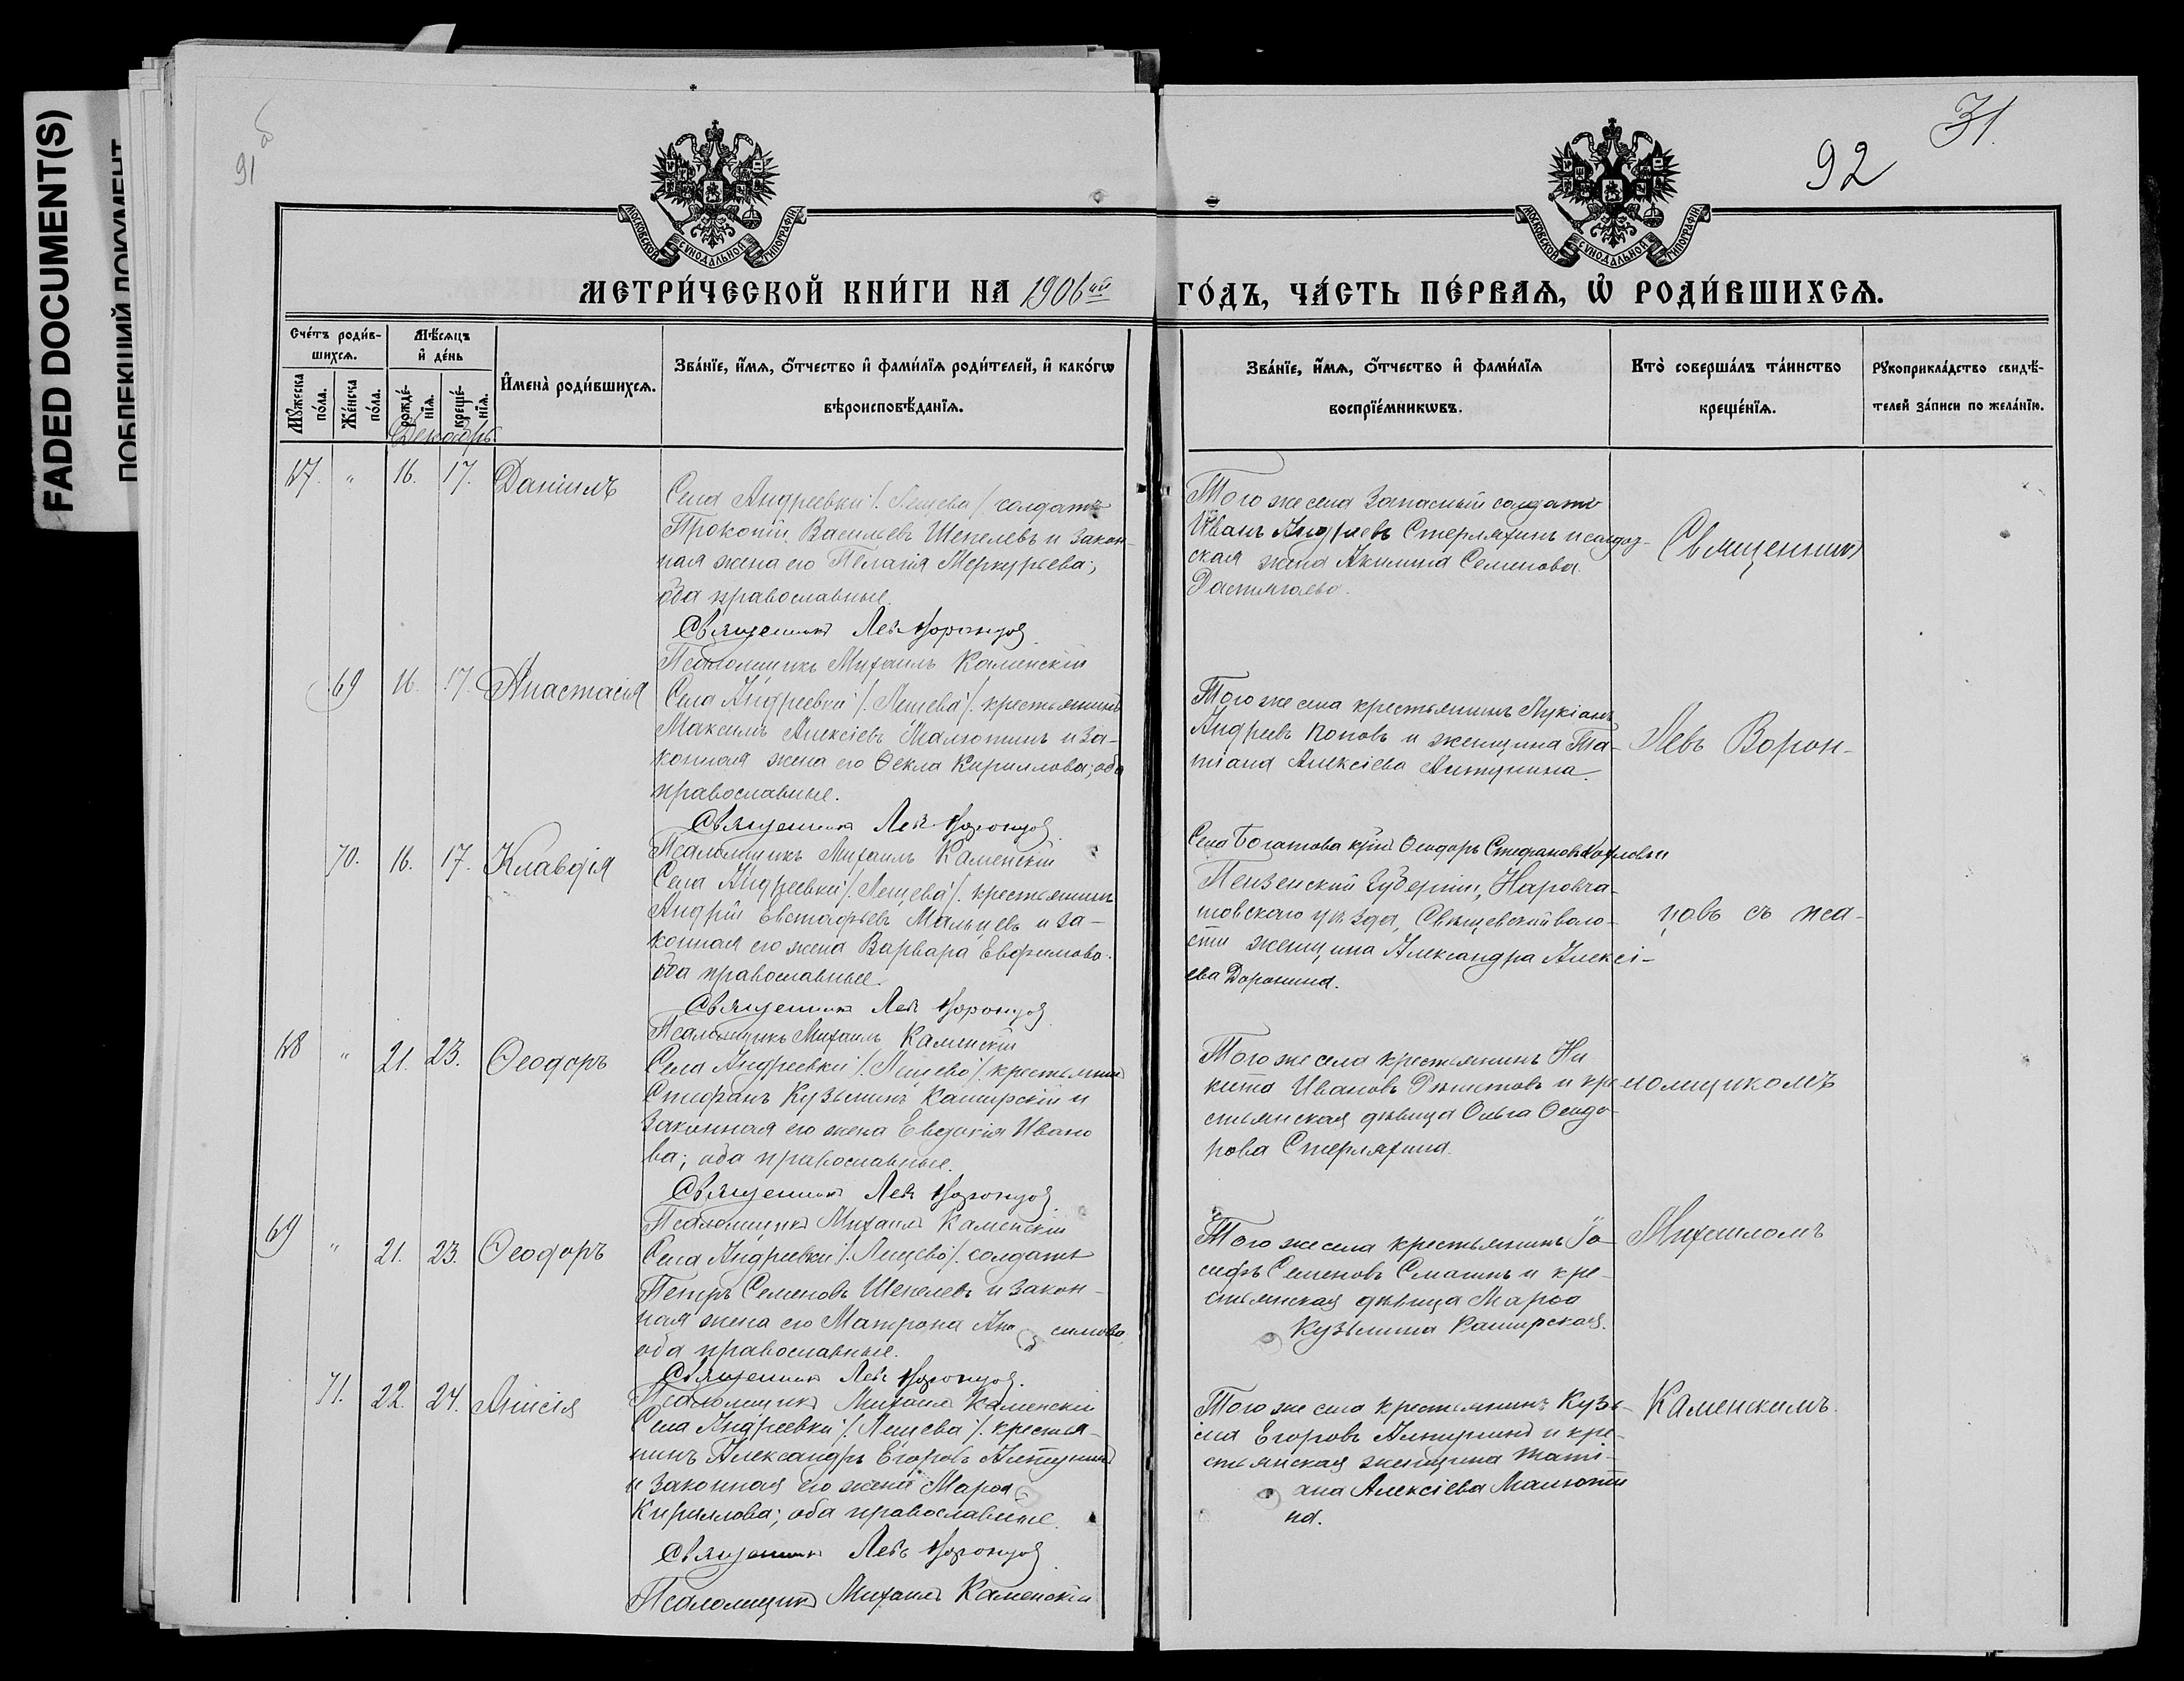 FADED DOCUMENT(S)
ПОБЛЕКШИЙ ДОКУМЕНТ
91 об
92
31.
МОСКОВСКОЙ СѴНОДАЛЬНОЙ ТИПОГРАФІИ
МОСКОВСКОЙ СѴНОДАЛЬНОЙ ТИПОГРАФІИ
МЕТРИ́ЧЕСКОЙ КНИ́ГИ НА 1906ый ГО́ДЪ, ЧА́СТЬ ПЕ́РВАЯ, Ѡ҆ РОДИ́ВШИХСЯ.
Сче́тъ роди́в-
шихся.
Мꙋ́жеска по́ла.
Же́нска по́ла.
Мѣ́сяцъ
и҆ де́нь
рожде́-
нїя.
креще́-
нїя.
И҆мена̀ роди́вшихся.
Зва́нїе, и҆́мя, ѻ҆́тчество и҆ фами́лїя роди́телей, и҆ како́гѡ
вѣроисповѣ́данїя.
Зва́нїе, и҆́мя, ѻ҆́тчество и҆ фами́лїя
воспрїе́мникѡвъ.
Кто̀ соверша́лъ та́инство
креще́нїя.
Рꙋкоприкла́дство свидѣ́-
телей за́писи по жела́нїю.
Декабрь
67. " 16. 17. Даніилъ
Села Андреевки /. Лещева /. солдатъ
Прокопій Васильевъ Шепелевъ и закон-
ная жена его Пелагія Меркурьева;
оба православные.
Священникъ Левъ Воронцовъ
Псаломщикъ Михаилъ Каменскій
Того же села запасный солдатъ
Иванъ Андреевъ Стерляхинъ и солдат-
ская жена Акилина Семенова
Священникъ
69 16. 17. Анастасія
Села Андреевки /. Лещева /. крестьянинъ
Максимъ Алексіевъ Малютинъ и за-
конная жена его Ѳекла Кириллова; оба
православные.
Священникъ Левъ Воронцовъ
Псаломщикъ Михаилъ Каменскій
Того же села крестьянинъ Лукіанъ
Андреевъ Поповъ и женщина Та-
тіана Алексіева Алтунина.
Левъ Ворон-
70. 16. 17. Клавдія
Села Андреевки /. Лещева /. крестьянинъ
Андрей Евстафьевъ Мальцевъ и за-
конная его жена Варвара Евфимова
оба православные.
Священникъ Левъ Воронцовъ
Псаломщикъ Михаилъ Каменскій
Села Богатова Ѳеодоръ Стефановъ и
Пензенской Губерніи, Наровча-
товскаго уѣзда, воло-
сти женщина Александра Алексі-
ева Доронина.
цовъ съ пса-
68 " 21. 23. Ѳеодоръ
Села Андреевки /. Лещева /. крестьянинъ
Стефанъ Кузьминъ Каширскій и
законная его жена Евдокія Ивано
ва; оба православные.
Священникъ Левъ Воронцовъ
Псаломщикъ Михаилъ Каменскій
Того же села крестьянинъ Ни
кита Ивановъ и кре
стьянская дѣвица Ольга Ѳеодо-
рова Стерляхина.
ломщикомъ
69 " 21. 23. Ѳеодоръ
Села Андреевки /. Лещева /. солдатъ
Петръ Семеновъ Шепелевъ и закон-
ная жена его Матрона Ани симова
оба православные.
Священникъ Левъ Воронцовъ.
Псаломщикъ Михаилъ Каменскій
Того же села крестьянинъ Іо
сифъ Семеновъ Смагинъ и кре-
стьянская дѣвица Марѳа
Кузьмина Каширская.
Михаиломъ
71. 22. 24. Анисія
Села Андреевки /. Лещева /. крестья-
нинъ Александръ Егоровъ Алтунинъ
и законная его жена Марѳа
Кириллова; оба православные.
Священникъ Левъ Воронцовъ
Псаломщикъ Михаилъ Каменскій
Того же села крестьянинъ Кузь-
ма Егоровъ Алтунинъ и кре-
стьянская женщина Таті-
ана Алексіева Малюти
на.
Каменскимъ.